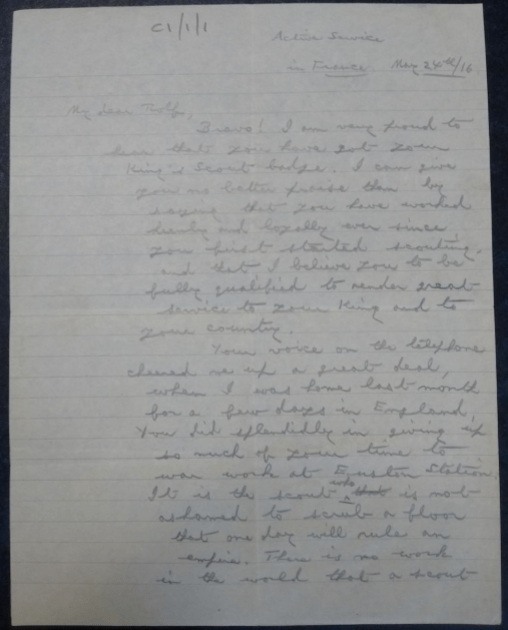 C1/1/1
Active Service
in France May 24th/16
My dear Rolf,
Bravo! I am very proud to
hear that you have got your
King's Scout badge. I can give
you no better praise than by
saying that you have worked
and loyally ever since
you first started scouting,
and that I believe you to be
fully qualified to render great
service to your King and to
your country.
Your voice on the telephone
cheered me up a great deal,
when I was home last month
for a few days in England,
You did splendidly in giving up
so much of your time to
war work at Euston Station.
It is the scout who that is not
ashamed to scrub a floor
that one day will rule an
empire. There is no work
in the world that a scout